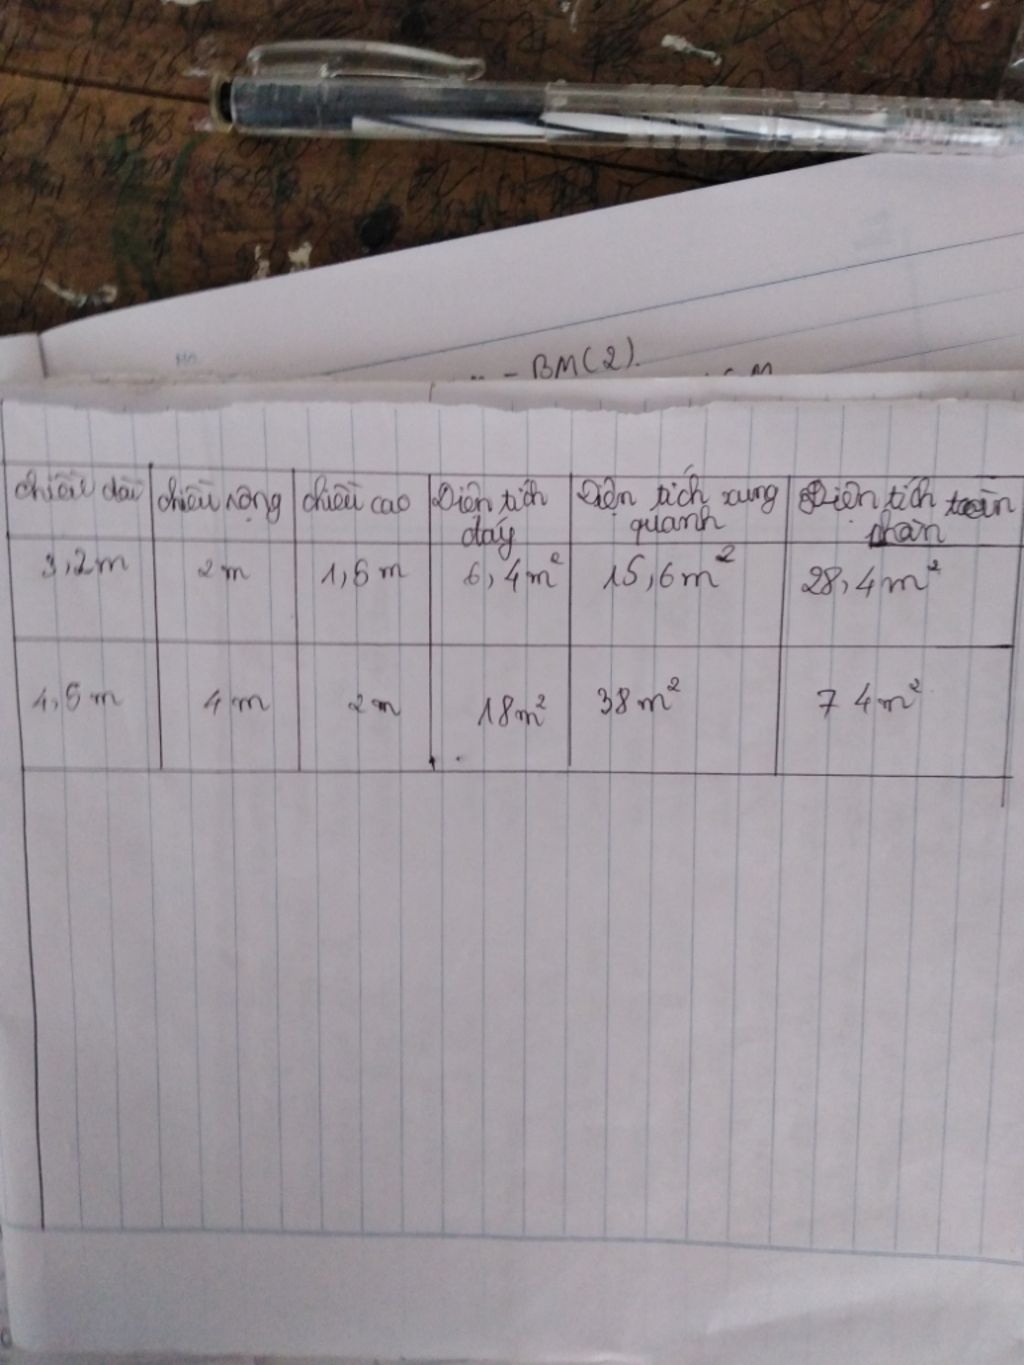 - BM(2).
chiều dài chiều rộng chiều cao Diện tích đáy Diện tích xung quanh Diện tích toàn phần
3,2m 2m 1,5m 6,4m² 15,6m² 28,4m²
4,5m 4m 2m 18m² 38m² 74m²